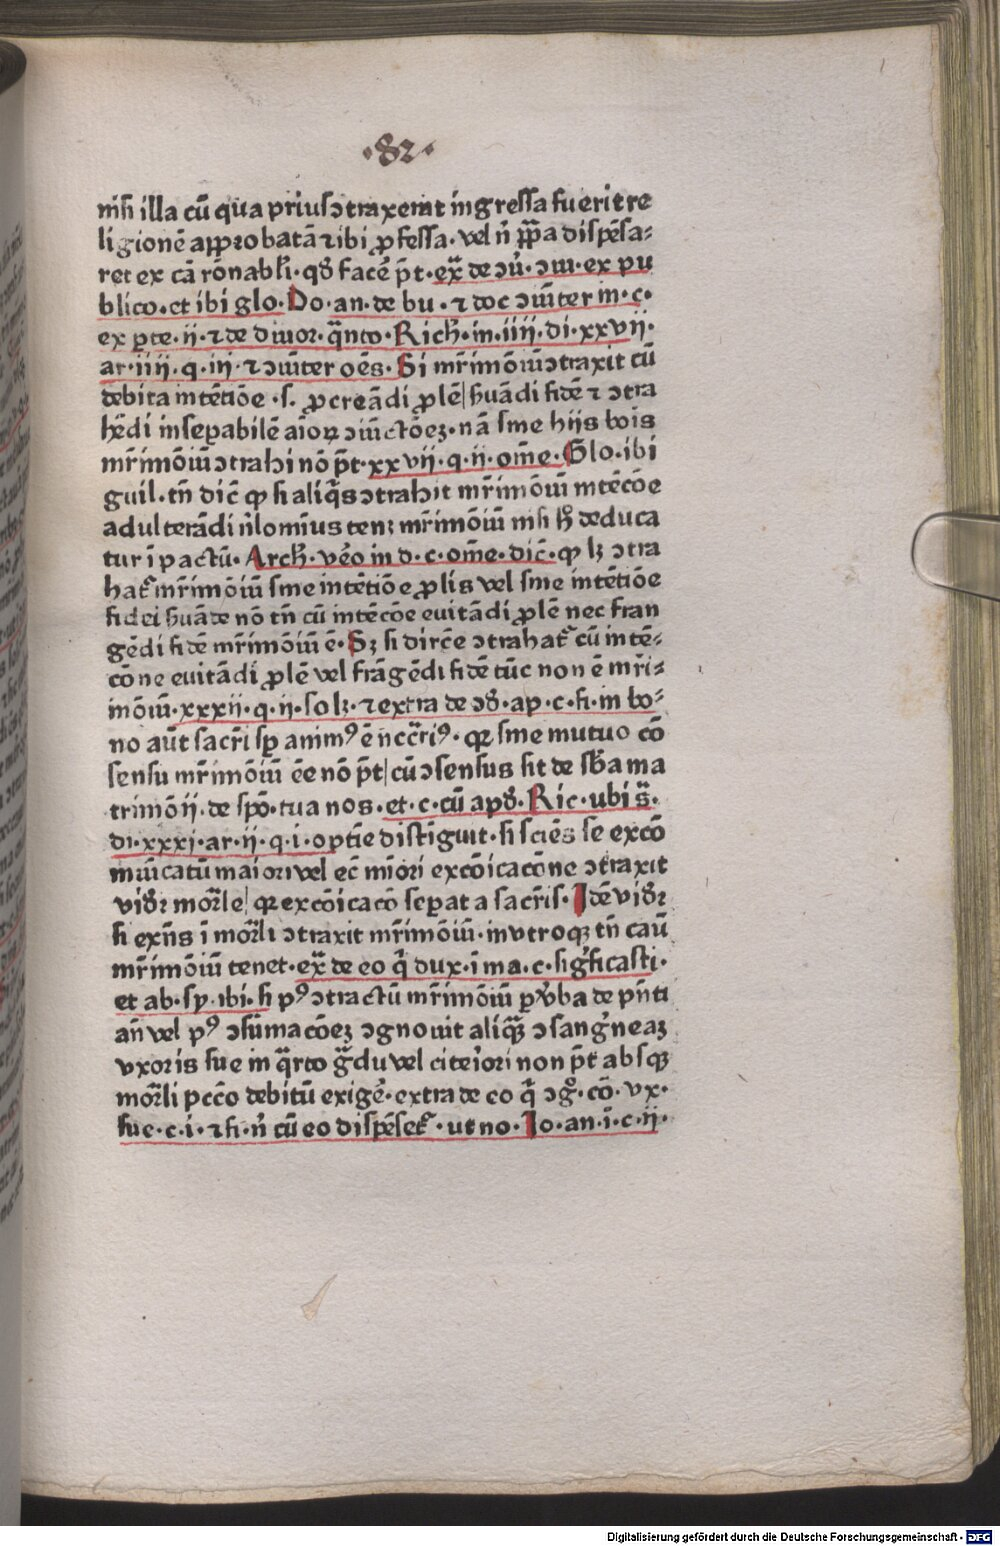 ·82·
nisi illa cū qua prius ↄtraxerat ingressa fuerit re
ligionē approbatā ⁊ ibi ꝓfessa· vel n̄ ꝓpa dispēsa⸗
ret ex cā rōnabli· qd̓ facē p̄t· ex̄ de ↄū· ↄiu· ex pu
blico· et ibi glo· Do· an· de bu · ⁊ doc ↄiūter in· c·
ex ꝑte· ii· ⁊ de diuor· q̄nto· Rich̄· in· iiii· di· xxvii·
ar· iiii· q· iii· ⁊ ↄiūter oēs· Si mr̄imōiū ↄtraxit cū
debita intētiōe ·s· ꝓcreādi ꝓlē| ẜuādi fidē ⁊ ↄtra
hēdi insepabilē aīoꝝ ↄiūctōeꝫ· nā sine hijs bois
mr̄imōiū ↄtrahi nō p̄t· xxvii· q· ii· om̄e· Glo· ibi
guil· tn̄ dic̄ ꝙ si aliq̄s ↄtrahit mr̄imōiū intēcōe
adulterādi n̓lomīus tenꝫ mr̄imōiū nisi h̓ deduca
tur ī pactū· Arch̄· vēo in d· c· om̄e· dic̄· ꝙ lꝫ ↄtra
hat̄ mr̄imōiū sine intētiōe ꝓlis vel sine intētiōe
fidei ẜuāde nō tn̄ cū intēcōe euitādi ꝓlē nec fran
gēdi fidē mr̄imōiū ē· Sꝫ si dircē ↄtrahat̄ cū intē⸗
cōne euitādi ꝓlē vel frāgēdi fidē tūc non ē mr̄i⸗
mōiū· xxxii· q· ii· solꝫ· ⁊ extra de ↄd̓· ap· c· fi· in bo⸗
no aūt sacr̄i sꝑ animꝰ ē nccr̄iꝰ· qꝛ sine mutuo cō
sensu mr̄imōiū ēe nō p̄t| cū ↄsensus sit de sb̄a ma
trimōii· de spō· tua nos· et· c· cū apd̓· Ric· ubi s̄·
di· xxxi· ar· ii· q· i· optie distīguit· si sciēs se excō
mūicatū maiori vel ec̄ mīori excōicacōne ↄtraxit
vid̓ꝛ mor̄le| qꝛ excōicacō sepat a sacr̄is· Idē vid̓ꝛ
si exn̄s ī mor̄li ↄtraxit mr̄imōiū· in vtroqꝫ tn̄ caū
mr̄imōiū tenet· ex̄ de eo q̓ dux· ī ma· c· sig̓ficasti·
et ab· sy· ibi· si pꝰ ↄtractū mr̄imōiū ꝑ ꝟba de pn̄ti
an̄ vel pꝰ ↄsūmacōeꝫ ↄgnouit aliq̄ꝫ ↄsang̓neaꝫ
vxoris sue in q̄rto g̓du vel citeri̓ori non p̄t absqꝫ
mor̄li pccō debitū exigē· extra de eo q̓ ↄg̓· cō· vx·
sue· c· i· ⁊ fi· n̓ cū eo dispēset̄· ut no· Io· an· ī· c· ii·
Digitalisierung gefördert durch die Deutsche Forschungsgemeinschaft - DFG